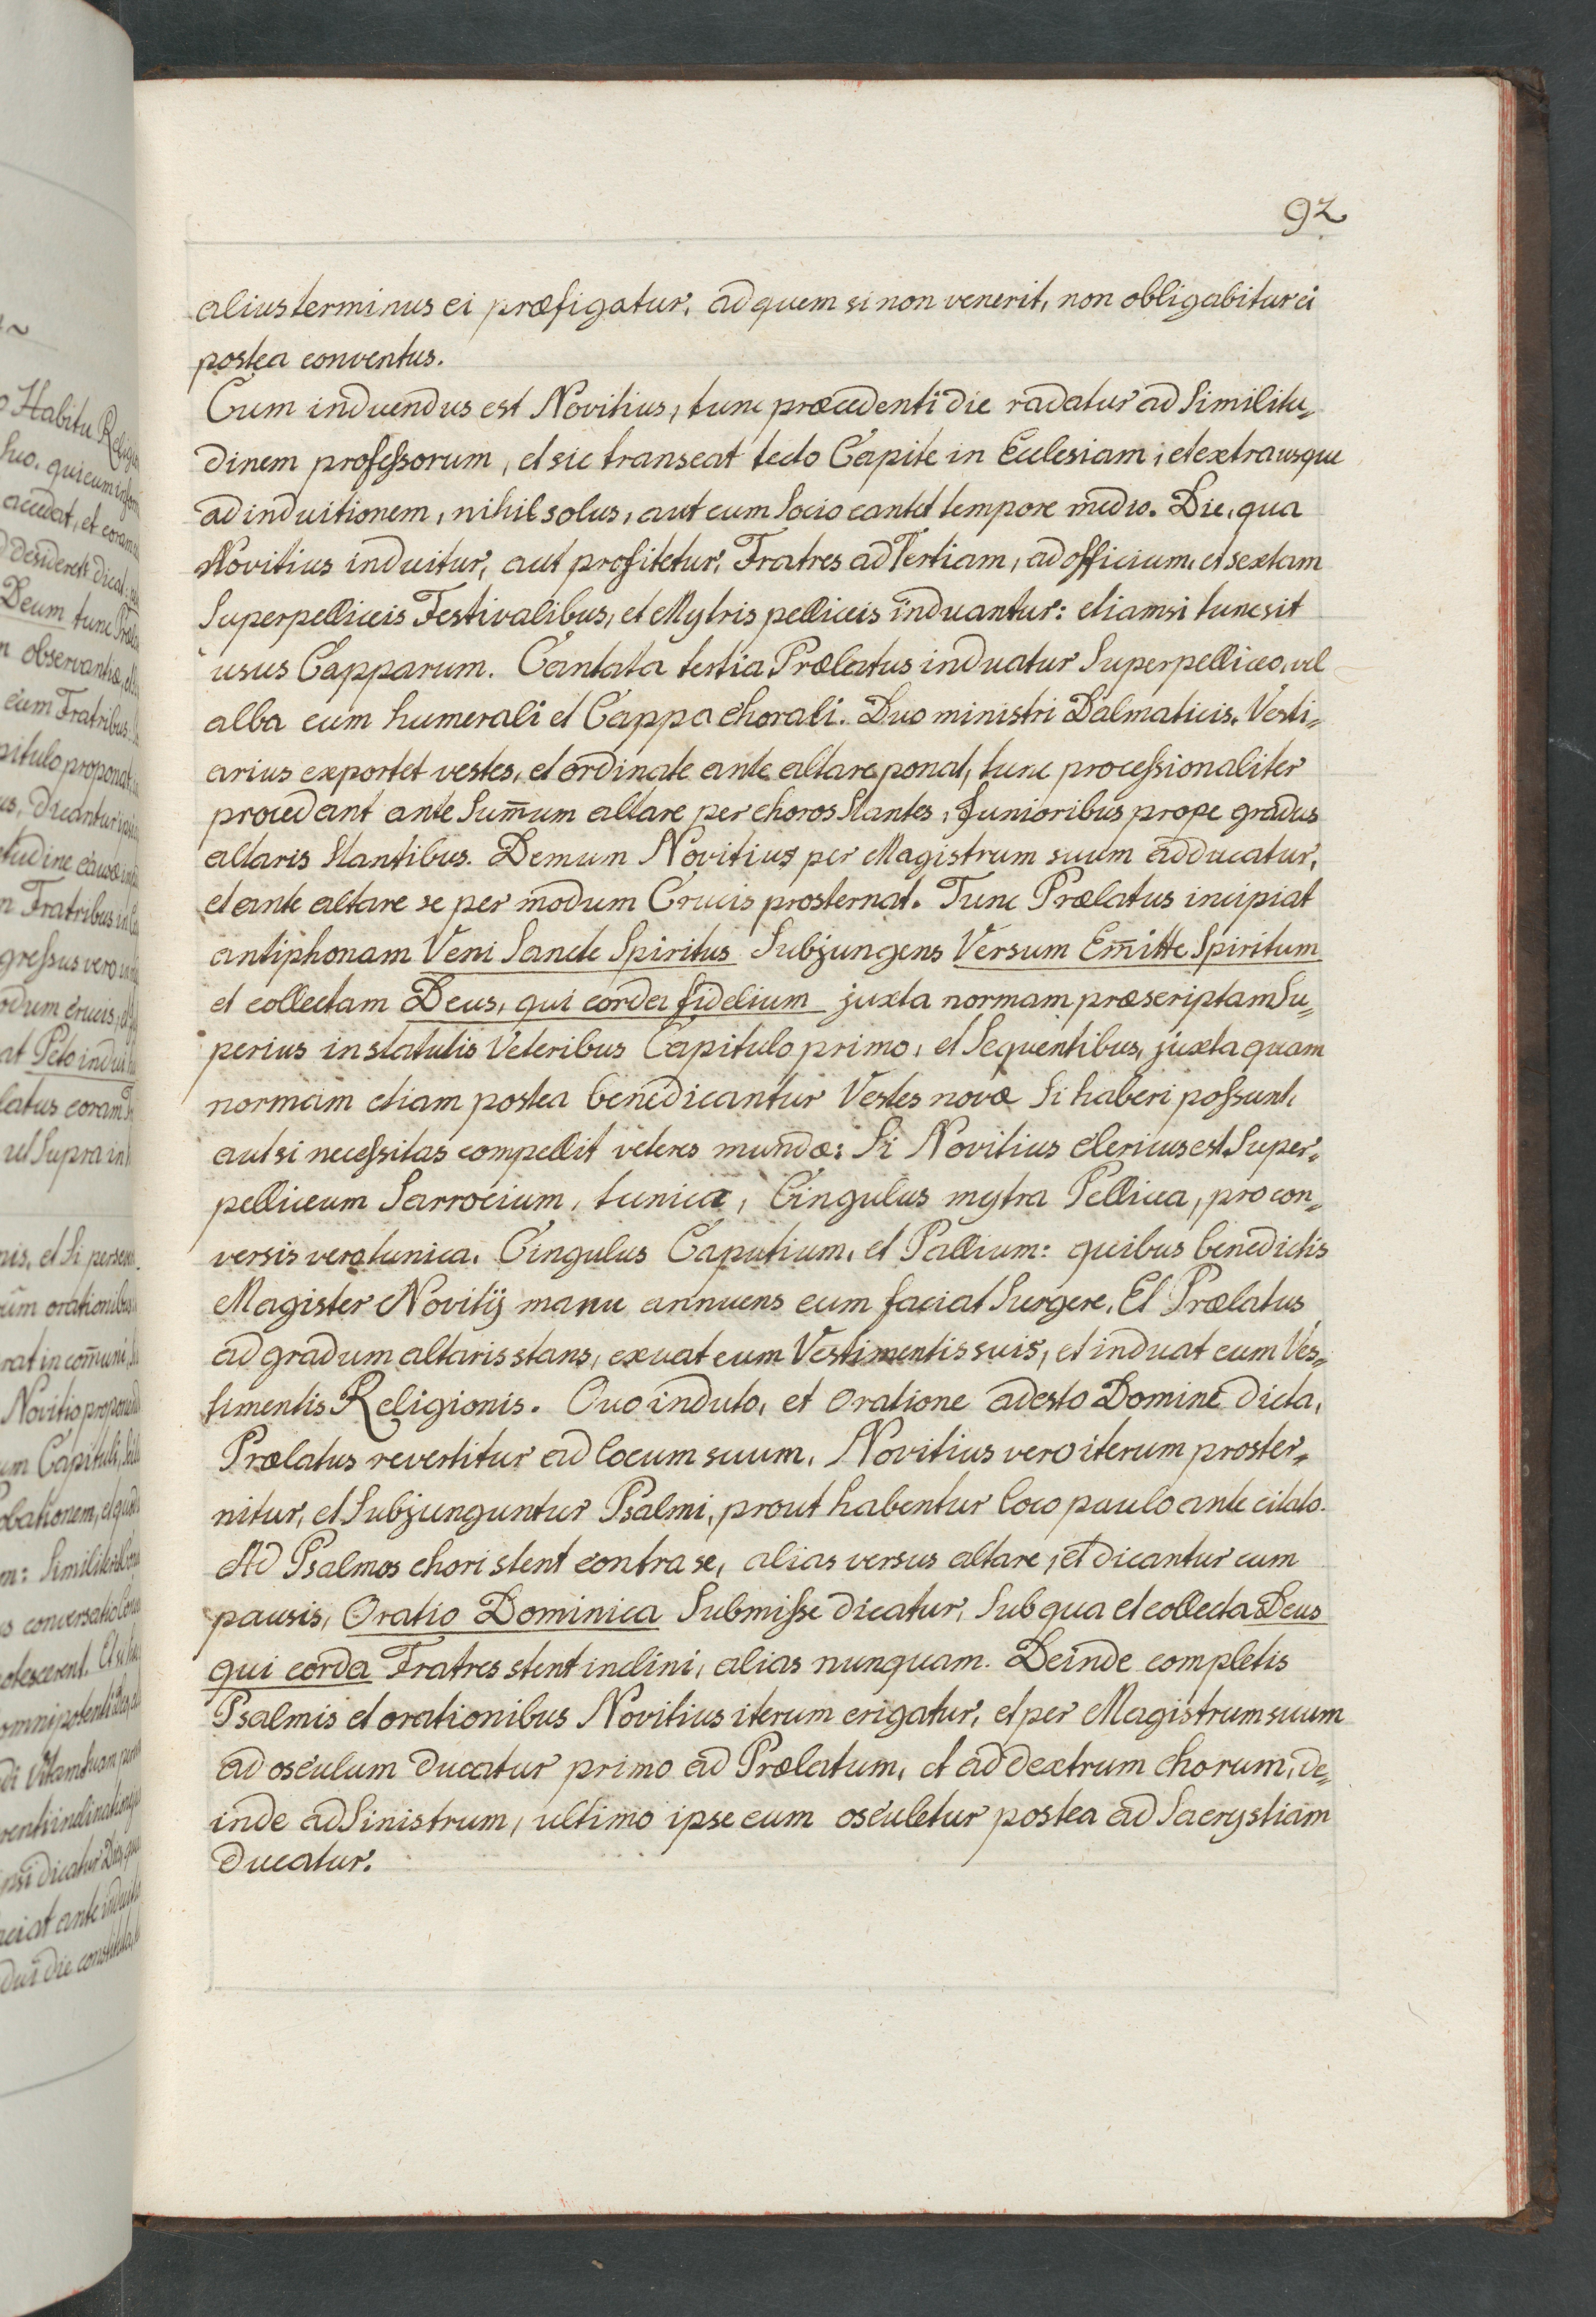 92
alius terminus ei præfigatur, ad quem si non venerit, non obligabitur ei
postea conventus.
Cum induendus est Novitius, tunc præcedenti die radatur ad similitu„
dinem professorum, et sic transeat tecto Capite in Ecclesiam, et extra usque
ad induitionem, nihil solus, aut cum socio cantet tempore medio. Die, qua
Novitius induitur, aut profitetur, Fratres ad Tertiam, ad officium, et sextam
Superpelliceis Festivalibus, et Mytris pelliceis induantur: etiamsi tunc sit
usus Capparum. Cantata tertia Prælatus induatur Superpelliceo, vel
alba cum humerali et Cappa chorali. Duo ministri Dalmaticis. Vesti„
arius exportet vestes, et ordinate ante altare ponat, tunc processionaliter
procedant ante sum̄um altare per choros stantes, Junioribus prope gradus
altaris stantibus. Demum Novitius per Magistrum suum adducatur,
et ante altare se per modum Crucis prosternat. Tunc Prælatus incipiat
antiphonam Veni Sancte Spiritus subjungens Versum Em̄itte Spiritum
et collectam Deus, qui corda fidelium juxta normam præscriptam su„
perius in statutis Veteribus Capitulo primo, et sequentibus, juxta quam
normam etiam postea benedicantur Vestes novæ si haberi possunt,
aut si necessitas compellit veteres mundæ: Si Novitius clericus est Super„
pelliceum Sarrocium, tunica, Cingulus mytra Pellicea, pro con„
versis vero tunica, Cingulus Caputium, et Pallium: quibus benedictis
Magister Novitij manu annuens eum faciat surgere, Et Prælatus
ad gradum altaris stans, exuat eum Vestimentis suis, et induat eum Ves„
timentis Religionis. Quo induto, et oratione adesto Domine dicta,
Prælatus revertitur ad locum suum, Novitius vero iterum proster„
nitur, et subjunguntur Psalmi, prout habentur loco paulo ante citato.
Ad Psalmos chori stent contra se, alias versus altare, et dicantur cum
pausis, Oratio Dominica submisse dicatur, sub qua et collecta Deus
qui corda Fratres stent inclini, alias nunquam. Deinde completis
Psalmis et orationibus Novitius iterum erigatur, et per Magistrum suum
ad osculum ducatur primo ad Prælatum, et ad dextrum chorum, de„
inde ad sinistrum, ultimo ipse eum osculetur postea ad Sacrystiam
ducatur.